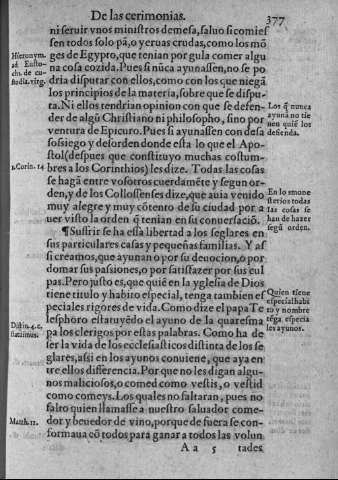 De las cerimonias.
377
ni seruir vnos ministros demesa, saluo si comies
sen todos solo pã, o yeruas crudas, como los mõ
ges de Egypro, que tenian por gula comer algu
na cosa cozida. Pues si nũca ayunassen, no se po
dria disputar con ellos, como con los que niegã
los principios de la materia, sobre que se dispu-
ta. Ni ellos tendrian opinion con que se defen-
der de algũ Christiano ni philosopho, sino por
ventura de Epicuro. Pues si ayunassen con desa
sosiego y desorden donde esta lo que el Apo-
stol (despues que constituyo muchas costum-
bres a los Corinthios) les dize. Todas las cosas
se hagã entre vosotros cuerdamẽte y segun or-
den, y de los Collossenses dize, que auia venido
muy alegre y muy cõtento de su ciudad por a
uer visto la orden q̃ tenian en su conuersaciõ.
¶ Suffrir se ha essa libertad a los seglares en
sus particulares casas y pequeñas familias. Y as
si creamos, que ayunan o por su deuocion, o por
domar sus passiones, o por satisfazer por sus cul
pas. Pero justo es, que quiẽ en la yglesia de Dios
tiene titulo y habito especial, tenga tambien es
peciales rigores de vida. Como dize el papa Te
lesphoro estatuyẽdo el ayuno de la quaresma
pa los clerigos por estas palabras. Como ha de
ser la vida de los ecclesiasticos distinta de los se
glares, assi en los ayunos conuiene, que aya en
tre ellos differencia. Por que no les digan algu-
nos maliciosos, o comed como vestis, o vestid
como comeys. Los quales no faltaran, pues no
falto quien llamasse a nuestro saluador come-
dor y beuedor de vino, porque de fuera se con-
formaua cõ todos para ganar a todos las volun
A a 5 tades
Hieronym.
ad Eusto-
chi. de cu-
stodia. virg.
1. Corin. 14
Distin. 4. c.
statuimus.
Matth. 11.
Los q̃ nunca
ayunã no tie
nen quiẽ los
defienda.
En los mone
sterios todas
las cosas se
han de hazer
segũ orden.
Quien tiene
especial habi
to y nombre
tẽga especia
les ayunos.